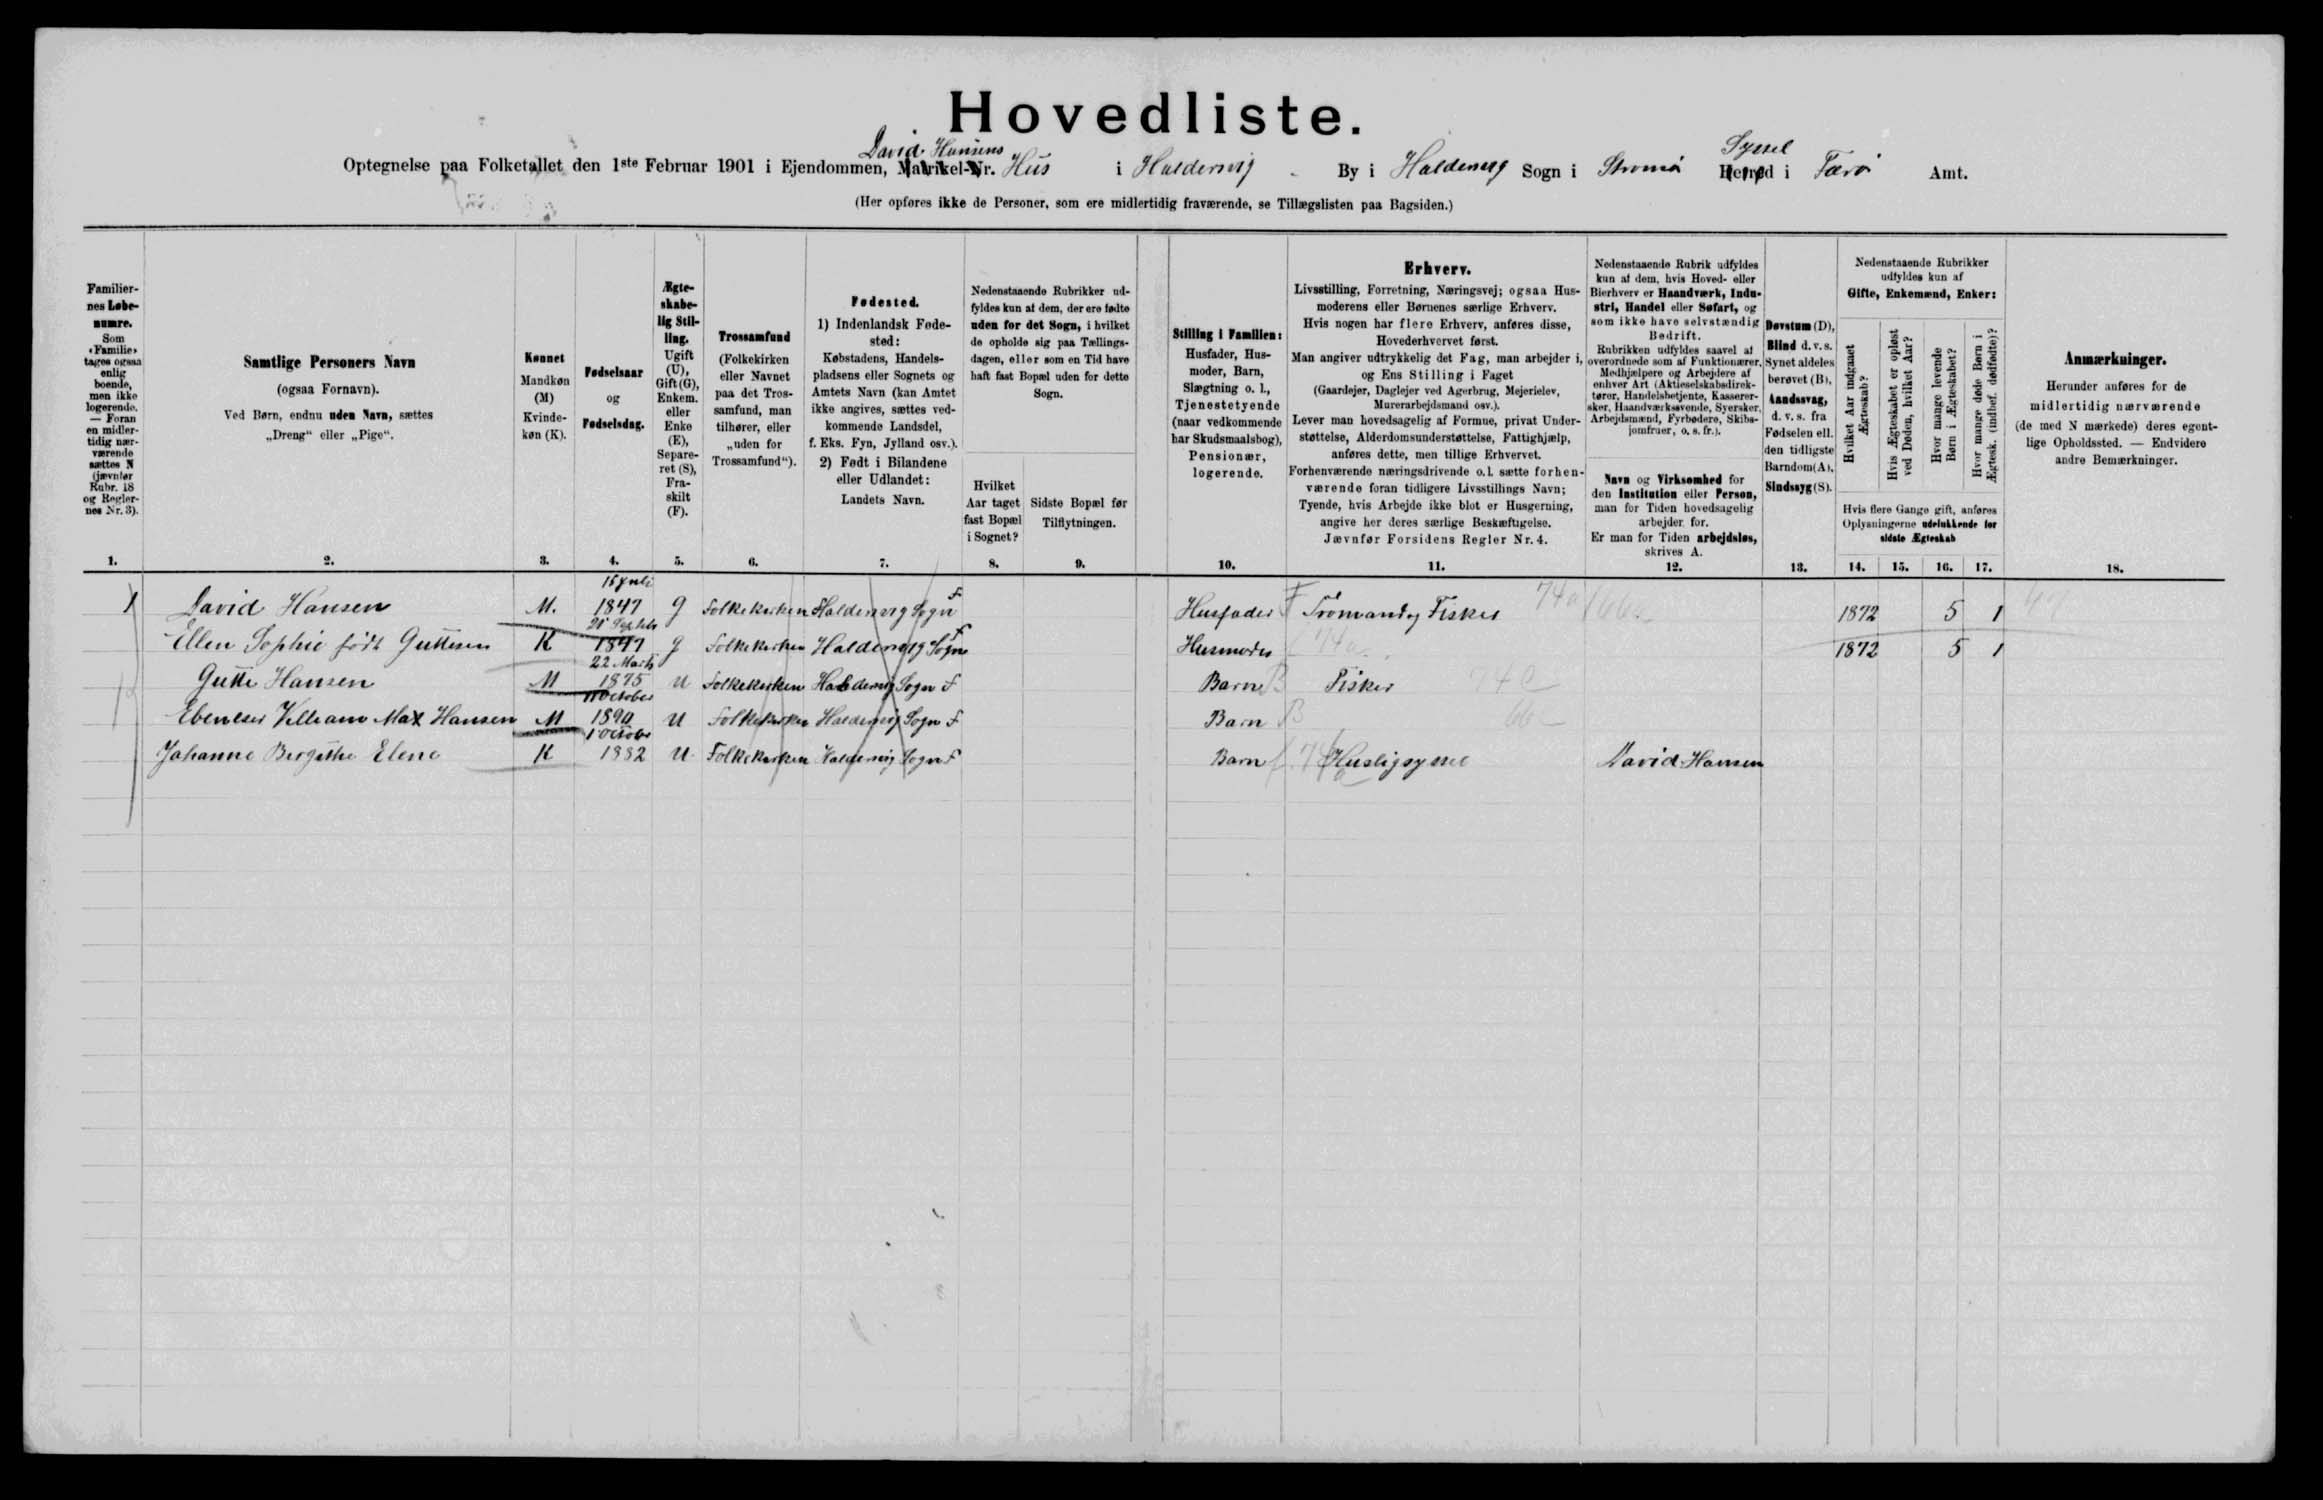 Hovedliste.
David Hansens Syssel
Optegnelse paa Folketallet den 1ste Februar 1901 i Ejendommen, Matrikel-Nr. Hus i Haldersvig By i Haldersvig Sogn i Stromø Herred i Færø Amt.
(Her opføres ikke de Personer, som ere midlertidig fraværende, se Tillægslisten paa Bagsiden.)
Familiernes Løbenumre. Som «Familie» tages ogsaa enlig boende, men ikke logerende. — Foran en midlertidig nærværende sættes N (jævnfør Rubr. 18 og Reglernes Nr. 3).
Samtlige Personers Navn
(ogsaa Fornavn).
Ved Børn, endnu uden Navn, sættes
„Dreng“ eller „Pige“.
Kønnet
Mandkøn (M)
Kvindekøn (K).
Fødselsaar
og
Fødselsdag.
Ægteskabelig Stilling.
Ugift (U), Gift (G), Enkem. eller Enke (E), Separeret (S), Fraskilt (F).
Trossamfund
(Folkekirken eller Navnet paa det Trossamfund, man tilhører, eller „uden for Trossamfund“).
Fødested.
1) Indenlandsk Fødested:
Købstadens, Handelspladsens eller Sognets og Amtets Navn (kan Amtet ikke angives, sættes vedkommende Landsdel, f. Eks. Fyn, Jylland osv.).
2) Født i Bilandene eller Udlandet:
Landets Navn.
Nedenstaaende Rubrikker udfyldes kun af dem, der ere fødte uden for det Sogn, i hvilket de opholde sig paa Tællingsdagen, eller som en Tid have haft fast Bopæl uden for dette Sogn.
Hvilket Aar taget fast Bopæl i Sognet?
Sidste Bopæl før Tilflytningen.
Stilling i Familien:
Husfader, Husmoder, Barn, Slægtning o. l., Tjenestetyende (naar vedkommende har Skudsmaalsbog), Pensionær, logerende.
Erhverv.
Livsstilling, Forretning, Næringsvej; ogsaa Husmoderens eller Børnenes særlige Erhverv.
Hvis nogen har flere Erhverv, anføres disse, Hovederhvervet først.
Man angiver udtrykkelig det Fag, man arbejder i, og Ens Stilling i Faget
(Gaardejer, Daglejer ved Agerbrug, Mejerielev, Murerarbejdsmand osv.).
Lever man hovedsagelig af Formue, privat Understøttelse, Alderdomsunderstøttelse, Fattighjælp, anføres dette, men tillige Erhvervet.
Forhenværende næringsdrivende o. l. sætte forhenværende foran tidligere Livsstillings Navn;
Tyende, hvis Arbejde ikke blot er Husgerning, angive her deres særlige Beskæftigelse.
Jævnfør Forsidens Regler Nr. 4.
Nedenstaaende Rubrik udfyldes kun af dem, hvis Hoved- eller Bierhverv er Haandværk, Industri, Handel eller Søfart, og som ikke have selvstændig Bedrift.
Rubrikken udfyldes saavel af overordnede som af Funktionærer, Medhjælpere og Arbejdere af enhver Art (Aktieselskabsdirektører, Handelsbetjente, Kasserersker, Haandværkssvende, Syersker, Arbejdsmænd, Fyrbødere, Skibsjomfruer, o. s. fr.).
Navn og Virksomhed for den Institution eller Person, man for Tiden hovedsagelig arbejder for.
Er man for Tiden arbejdsløs, skrives A.
Døvstum (D), Blind d. v. s. Synet aldeles berøvet (B), Aandssvag, d. v. s. fra Fødselen ell. den tidligste Barndom (A), Sindssyg (S).
Nedenstaaende Rubrikker udfyldes kun af
Gifte, Enkemænd, Enker:
Hvilket Aar indgaaet Ægteskab?
Hvis Ægteskabet er opløst ved Døden, hvilket Aar?
Hvor mange levende Børn i Ægteskabet?
Hvor mange døde Børn i Ægtesk. (indbef. dødfødte)?
Hvis flere Gange gift, anføres Oplysningerne udelukkende for sidste Ægteskab
Anmærkninger.
Herunder anføres for de midlertidig nærværende (de med N mærkede) deres egentlige Opholdssted. — Endvidere andre Bemærkninger.
1. 2. 3. 4. 5. 6. 7. 8. 9. 10. 11. 12. 13. 14. 15. 16. 17. 18.
1 David Hansen M. 15 Juli 1847 G Folkekirken Haldersvig Sogn F Husfader F Tromand og Fisker 74a 1872 5 1
Ellen Sophie født Guttesen K 1847 G Folkekirken Haldersvig Sogn F Husmoder 74a 1872 5 1
Gutte Hansen M 22 Marts 1875 U Folkekirken Haldersvig Sogn F Barn B Fisker 74
Ebeneser Villiam Max Hansen M 11 October 1890 U Folkekirken Haldersvig Sogn F Barn B
Johanne Bergithe Elene K 1 October 1882 U Folkekirken Haldersvig Sogn F Barn Husligsyssel David Hansen